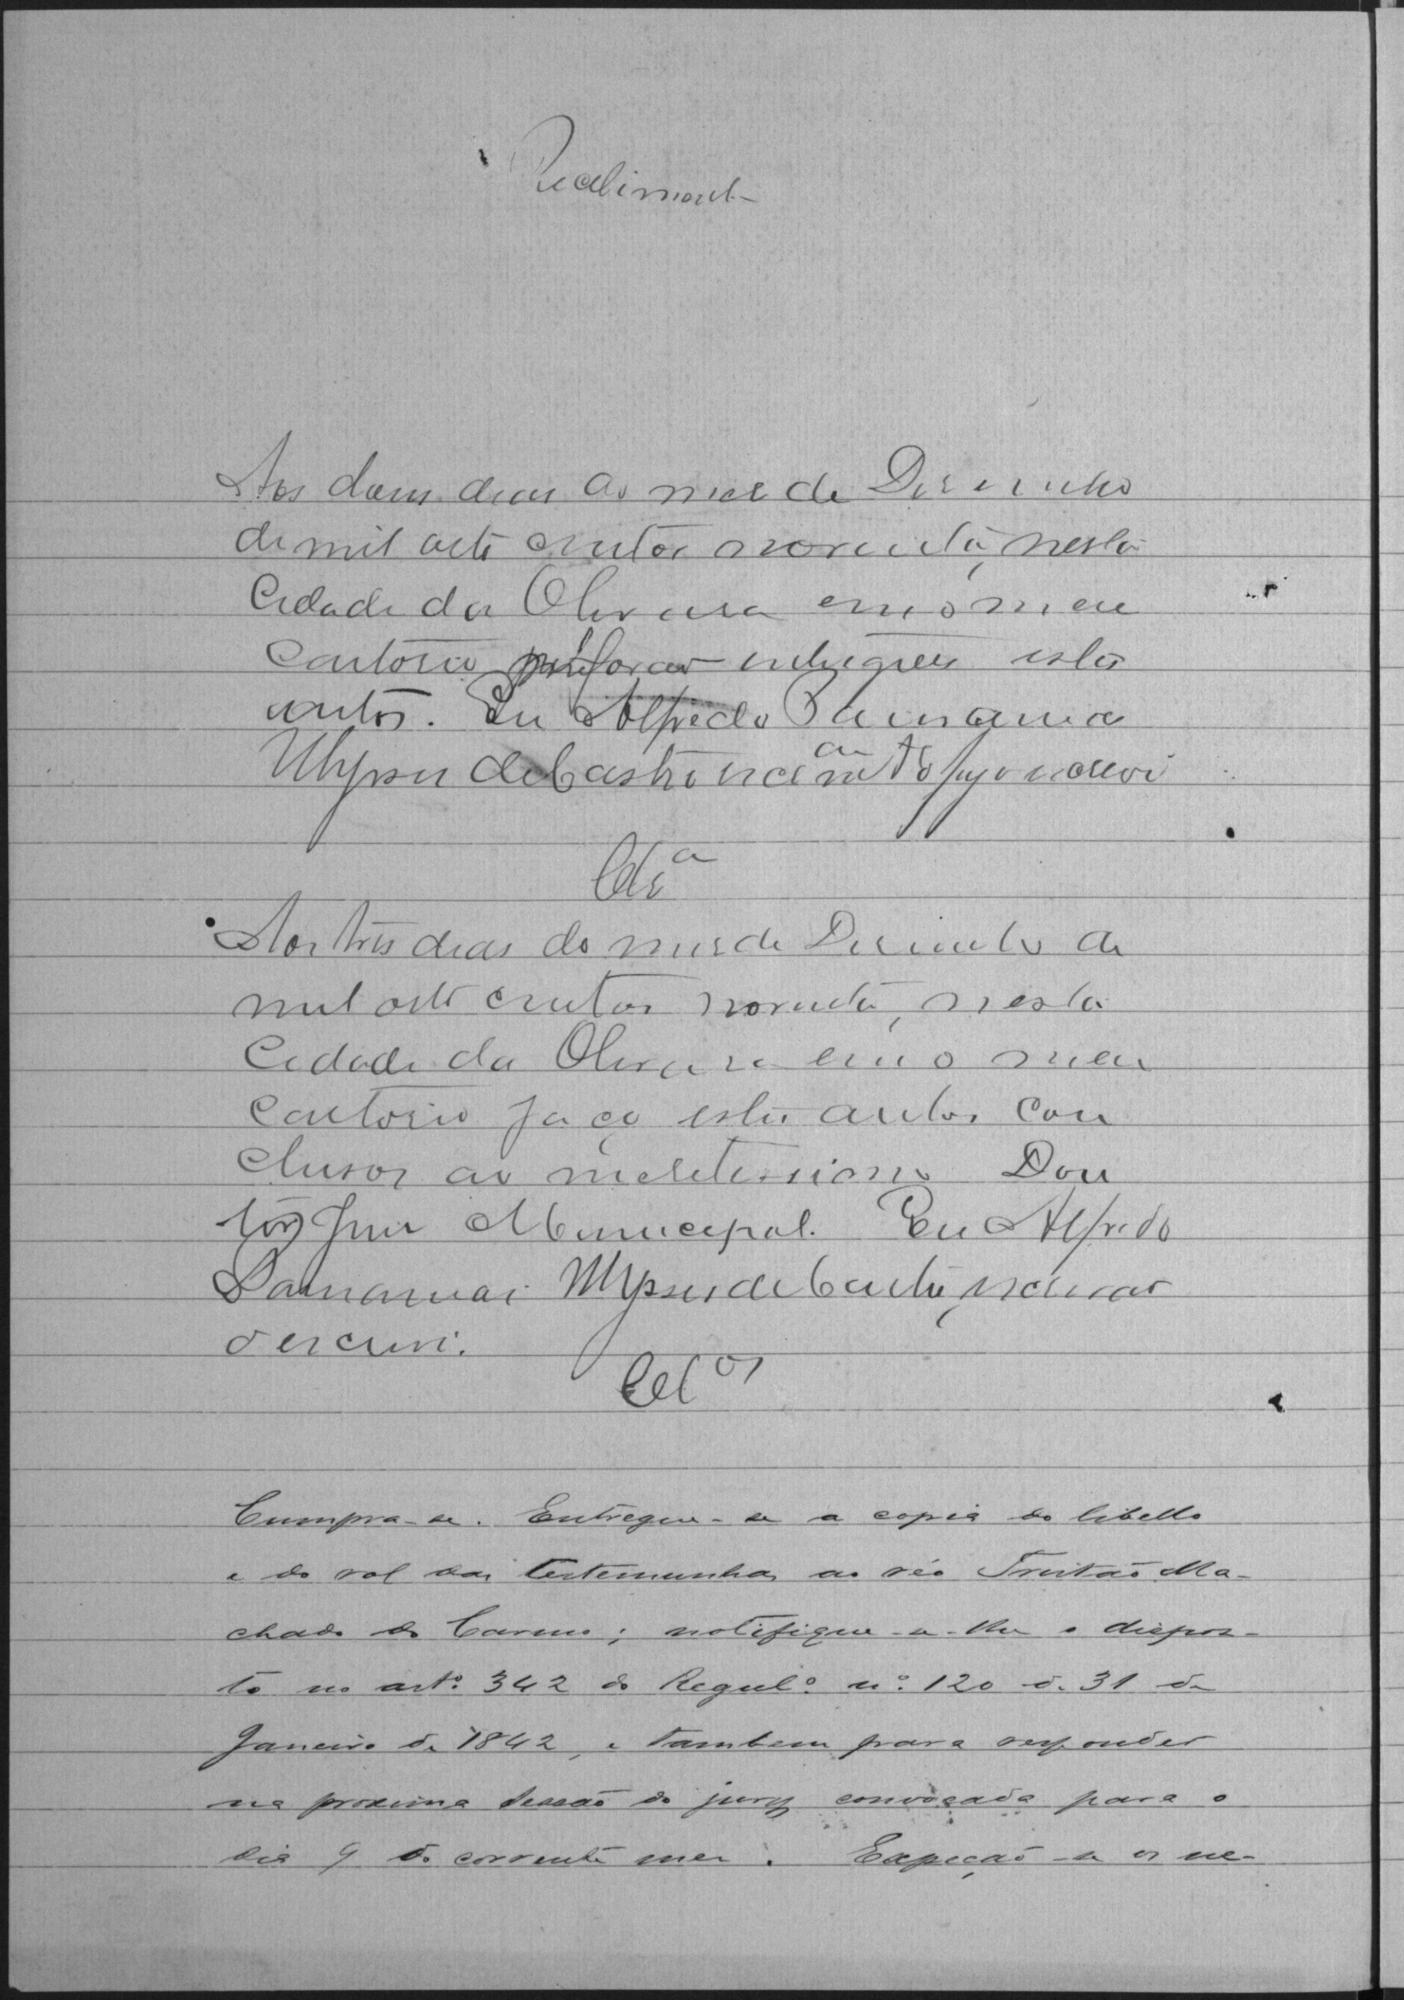 Recebimento
Aos dous dias do mes de Desembro
de mil oito centos noventa, nesta
Cidade da Oliveira em o meu
Cartorio foram entregues estes
autos. Eu Alfredo
Ulysses de Castro escrivão o escrevi
Cls.ª
Aos tres dias do mes de Desembro de
mil oito centos noventa, nesta
Cidade da Oliveira em o meu
Cartorio faço estes autos con
clusos ao meretissimo Dou
tor Juis Municipal. Eu Alfredo
Ulysses de Castro, escrivão
o escrevi.
Cl.os
Cumpra-se. Entregue-se a copia do libello
e do rol das testemunhas ao réo Tristão Ma-
chado do Carmo; notifique-se-lhe o dispos-
to no art.º 342 do Regul.º n.º 120 de 31 de
Janeiro de 1842, e tambem para responder
na proxima sessão do jury convocada para o
dia 9 do corrente mez. Expeção-se os ne-